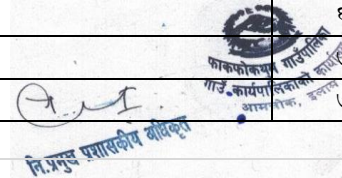 फाकफोकथुम गाउँपालिका
गाउँ कार्यपालिकाको कार्यालय
आमचोक, इलाम
नि.प्रमुख प्रशासकीय अधिकृत